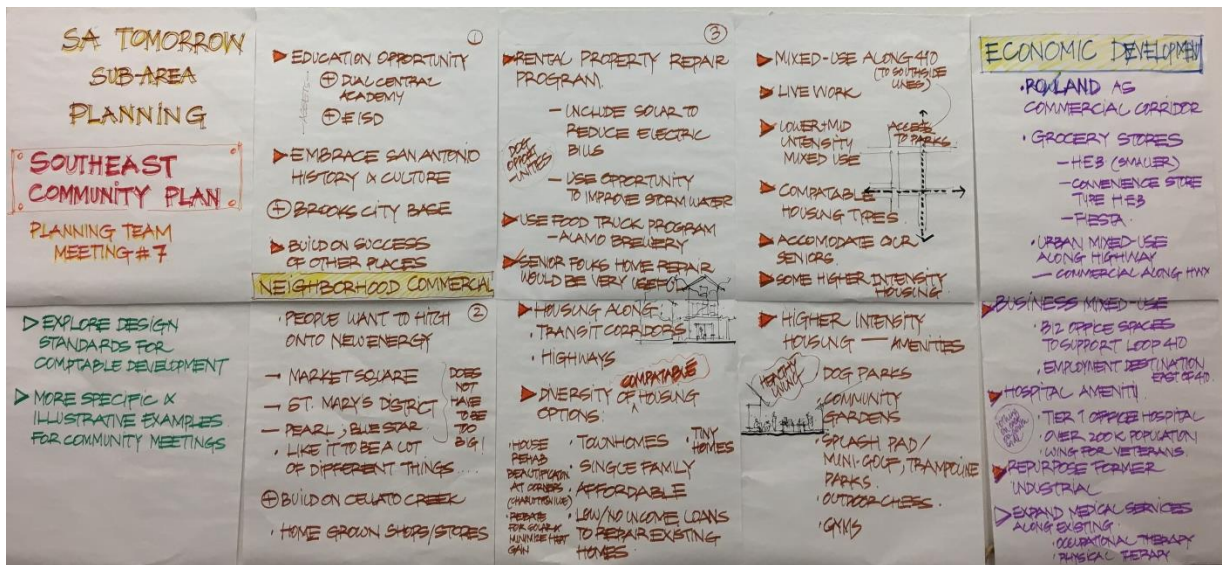 SA TOMORROW
SUB-AREA
PLANNING
SOUTHEAST
COMMUNITY PLAN
PLANNING TEAM
MEETING #7
EXPLORE DESIGN
STANDARDS FOR
COMPTABLE DEVELOPMENT
MORE SPECIFIC &
ILLUSTRATIVE EXAMPLES
FOR COMMUNITY MEETINGS
1
EDUCATION OPPORTUNITY
ASSETS
+ DUAL CENTRAL
ACADEMY
+ EISD
EMBRACE SAN ANTONIO
HISTORY & CULTURE
+ BROOKS CITY BASE
BUILD ON SUCCESS
OF OTHER PLACES
NEIGHBORHOOD COMMERCIAL
2
· PEOPLE WANT TO HITCH
ONTO NEW ENERGY
— MARKET SQUARE
— ST. MARY'S DISTRICT
— PEARL, BLUE STAR
DOES
NOT
HAVE
TO BE
TOO
BIG!
· LIKE IT TO BE A LOT
OF DIFFERENT THINGS....
+ BUILD ON CELLATO CREEK
· HOME GROWN SHOPS/STORES
3
RENTAL PROPERTY REPAIR
PROGRAM.
— INCLUDE SOLAR TO
REDUCE ELECTRIC
BILLS
— USE OPPORTUNITY
TO IMPROVE STORM WATER
USE FOOD TRUCK PROGRAM
— ALAMO BREWERY
SENIOR FOLKS HOME REPAIR
WOULD BE VERY USEFUL
· HOUSING ALONG
TRANSIT CORRIDORS
· HIGHWAYS
COMPATABLE
DIVERSITY OF HOUSING
OPTIONS:
· TOWNHOMES
· TINY
HOMES
· SINGLE FAMILY
· AFFORDABLE
· LOW/NO INCOME LOANS
TO REPAIR EXISTING
HOMES.
· HOUSE
REHAB
BEAUTIFICATION
AT CORNERS
· REBATE
FOR SOLAR
MINIMIZE HEAT
GAIN
MIXED-USE ALONG 410
(TO SOUTHSIDE
LINES)
LIVE WORK
LOWER+MID
INTENSITY
MIXED USE
ACCESS
TO PARKS
COMPATABLE
HOUSING TYPES
ACCOMODATE OUR
SENIORS.
SOME HIGHER INTENSITY
HOUSING
HIGHER INTENSITY
HOUSING — AMENITIES
HEALTHY
LIVING
DOG PARKS
· COMMUNITY
GARDENS
· SPLASH PAD/
MINI-GOLF, TRAMPOLINE
PARKS.
· OUTDOOR CHESS
· GYMS
ECONOMIC DEVELOPMENT
· ROWLAND AS
COMMERCIAL CORRIDOR
· GROCERY STORES
— HEB (SMALLER)
— CONVENIENCE STORE
TYPE HEB
— FIESTA
· URBAN MIXED-USE
ALONG HIGHWAY
— COMMERCIAL ALONG HWY
BUSINESS MIXED-USE
· BIZ OFFICE SPACES
TO SUPPORT LOOP 410
· EMPLOYMENT DESTINATION
EAST OF 410
HOSPITAL AMENITY
· TIER 1 OFFICE HOSPITAL
· OVER 200K POPULATION
· WING FOR VETERANS.
REPURPOSE FORMER
INDUSTRIAL
EXPAND MEDICAL SERVICES
ALONG EXISTING
· OCCUPATIONAL THERAPY
· PHYSICAL THERAPY